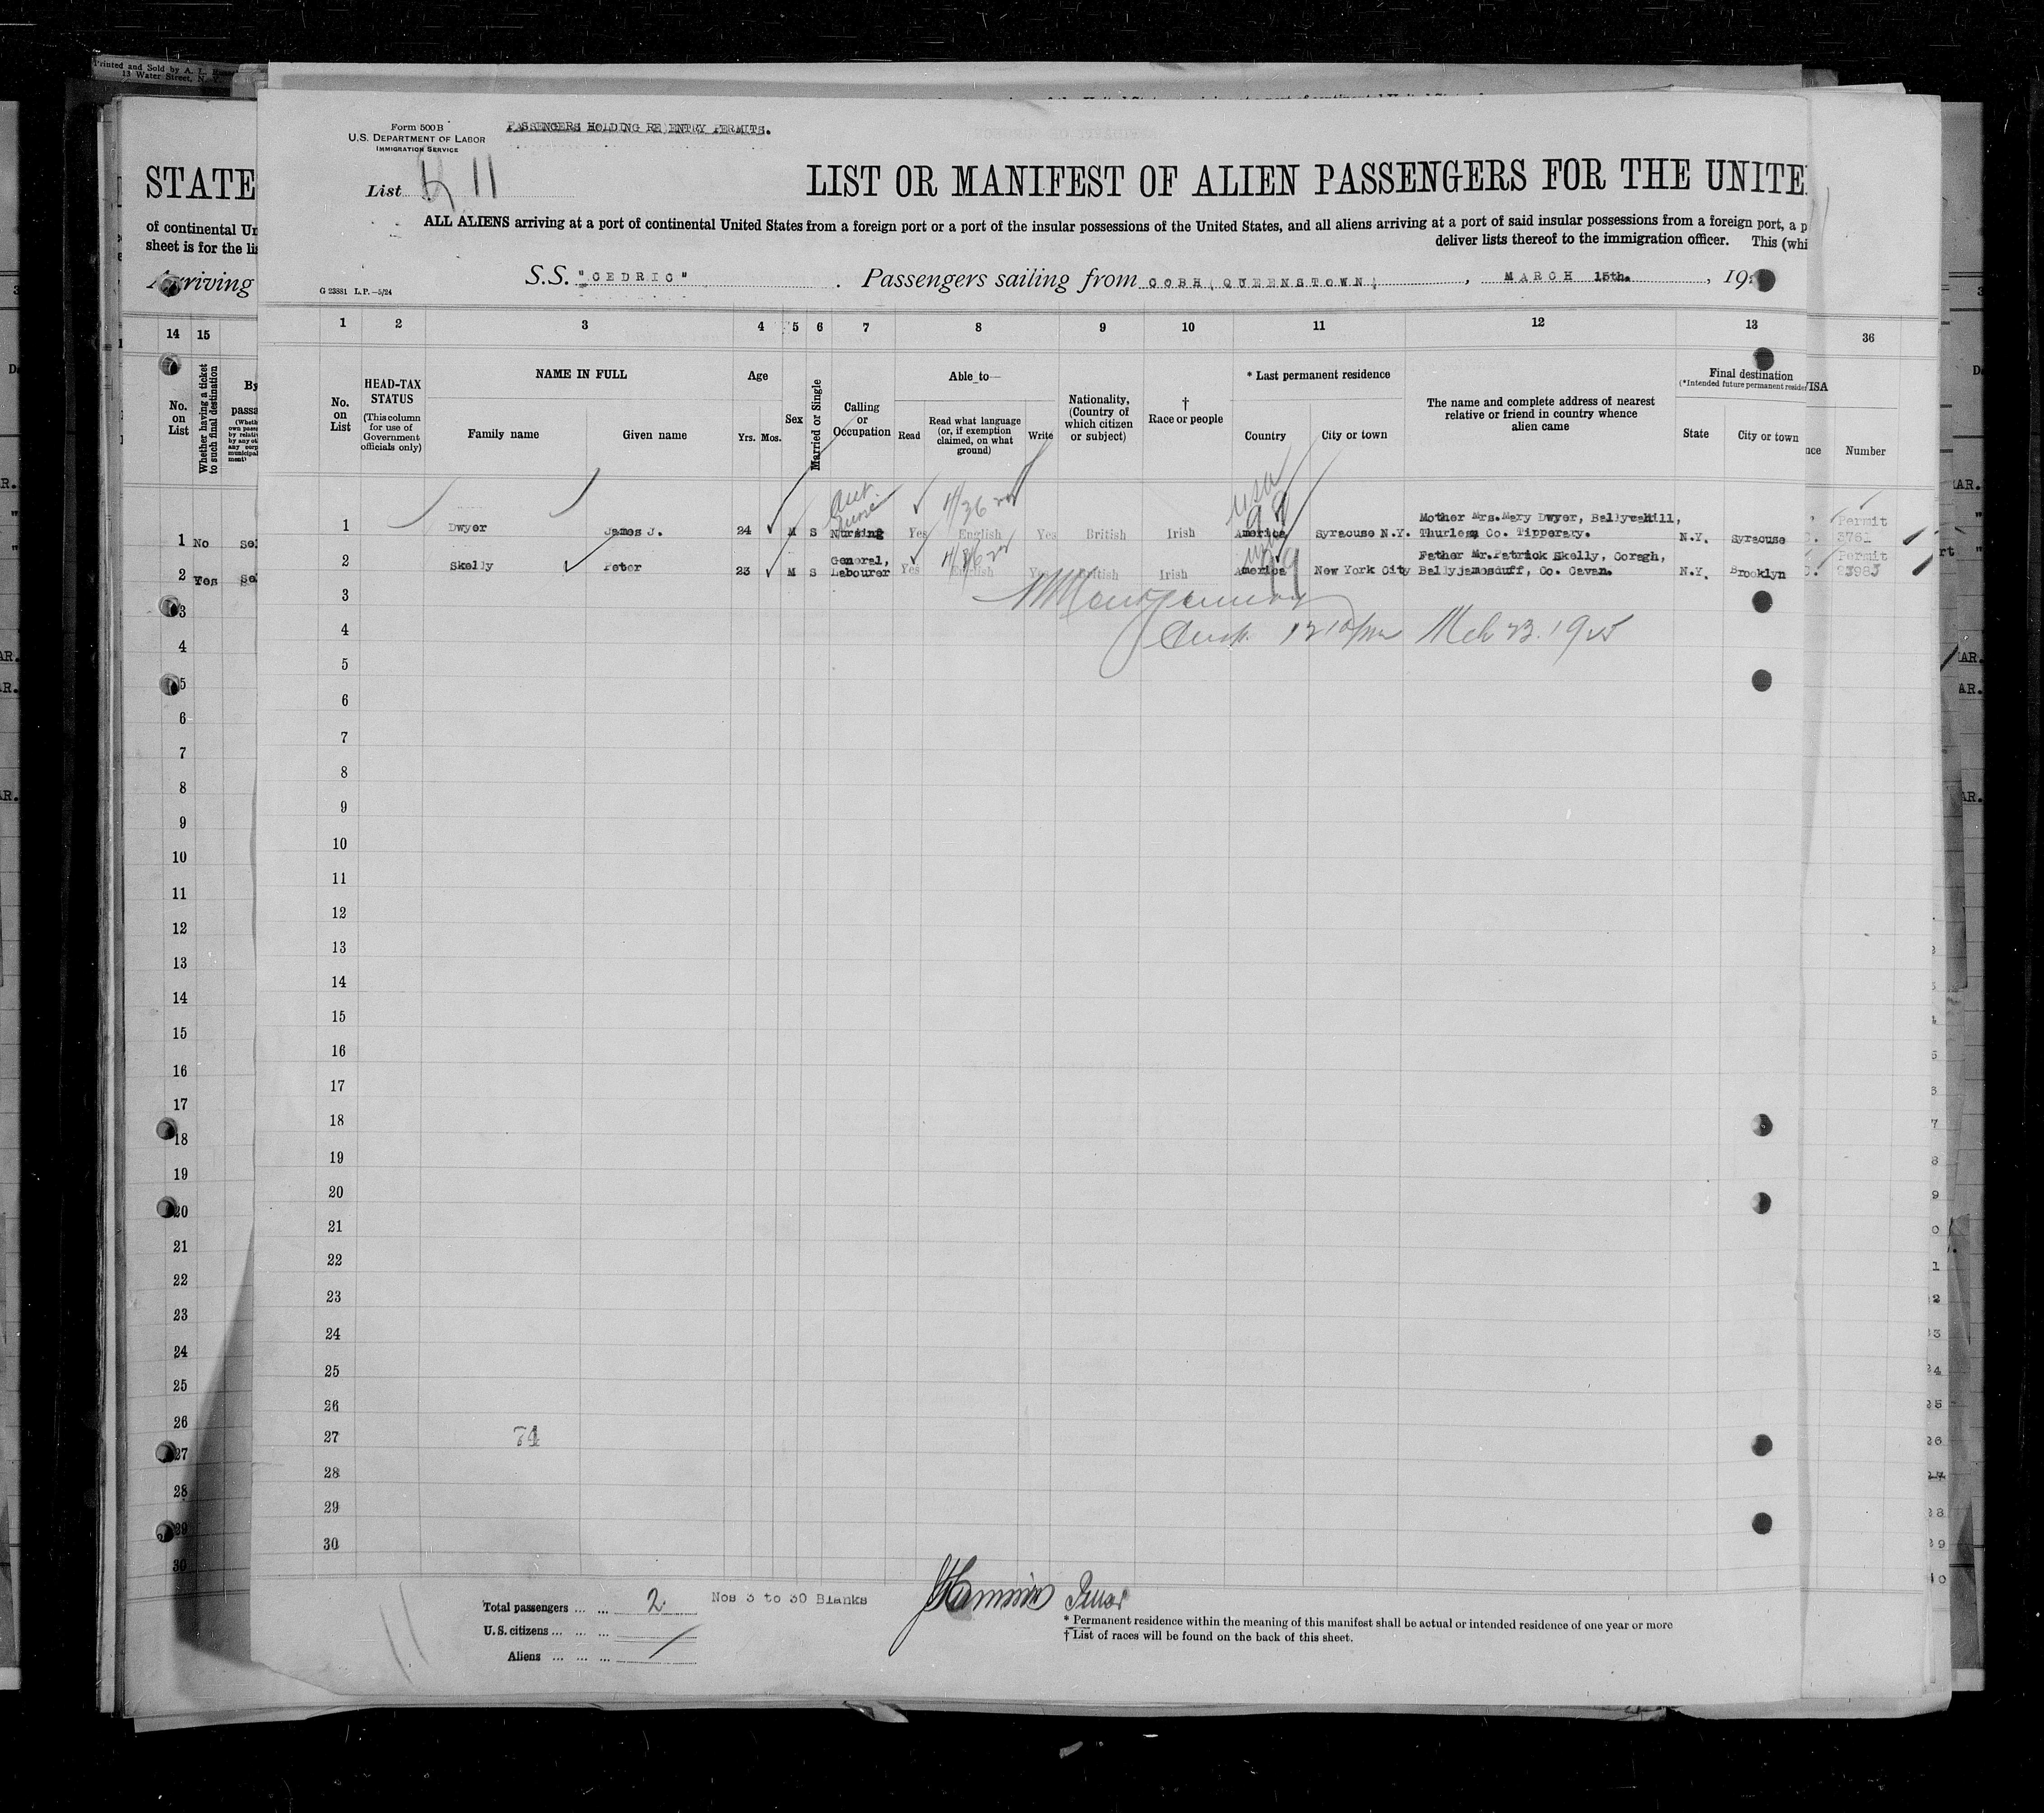 Printed and Sold by A. L.
13 Water Street, N. Y.
Form 500 B
U.S. DEPARTMENT OF LABOR
IMMIGRATION SERVICE
PASSENGERS HOLDING RE ENTRY PERMITS.
List 11
STATE
LIST OR MANIFEST OF ALIEN PASSENGERS FOR THE UNITE
of continental Un
sheet is for the li
ALL ALIENS arriving at a port of continental United States from a foreign port or a port of the insular possessions of the United States, and all aliens arriving at a port of said insular possessions from a foreign port, a p
deliver lists thereof to the immigration officer. This (whi
Arriving
S.S. "CEDRIC". Passengers sailing from COBH (QUEENSTOWN), MARCH 15th., 19
G 23881 L.P.—5/24
14 15
1 2 3 4 5 6 7 8 9 10 11 12 13
36
No. on List
Whether having a ticket to such final destination
By
passa
No. on List
HEAD-TAX STATUS
(This column for use of Government officials only)
NAME IN FULL
Family name
Given name
Age
Yrs. Mos.
Sex
Married or Single
Calling or Occupation
Able to—
Read
Read what language (or, if exemption claimed, on what ground)
Write
Nationality, (Country of which citizen or subject)
† Race or people
* Last permanent residence
Country
City or town
The name and complete address of nearest relative or friend in country whence alien came
Final destination
(*Intended future permanent reside
State
City or town
VISA
nce
Number
1 No Se
2 Yes Se
1 Dwyer James J. 24 M S Nursing Yes English Yes British Irish America Syracuse N.Y. Mother Mrs. Mary Dwyer, Ballycahill, Thurles, Co. Tipperary. N.Y. Syracuse Permit 3761
2 Skelly Peter 23 M S General, Labourer Yes English Yes British Irish America New York City Father Mr. Patrick Skelly, Ooragh, Ballyjamesduff, Co. Cavan. N.Y. Brooklyn Permit 23983
USA
3
4 1210 Mch 23. 1925
5
6
7
8
9
10
11
12
13
14
15
16
17
18
19
20
21
22
23
24
25
26
27 74
28
29
30
Total passengers ... ... 2 Nos 3 to 30 Blanks
U.S. citizens ... ... ...
Aliens ... ... ...
* Permanent residence within the meaning of this manifest shall be actual or intended residence of one year or more
† List of races will be found on the back of this sheet.
11